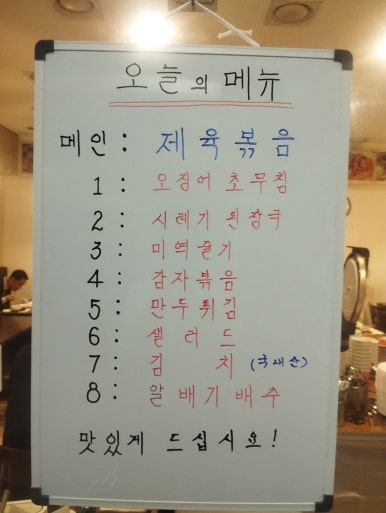 오늘의 메뉴
메인 : 제육볶음
1 : 오징어 초무침
2 : 시레기 된장국
3 : 미역줄기
4 : 감자볶음
5 : 만두튀김
6 : 샐러드
7 : 김치 (국내산)
8 : 알배기배추
맛있게 드십시요!